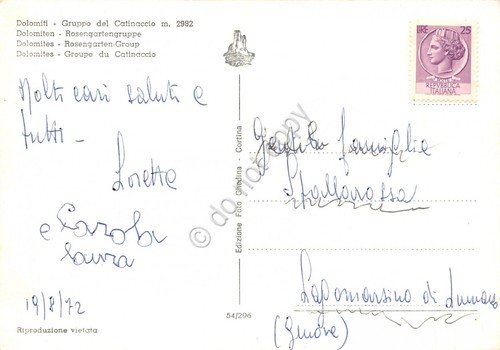 Dolomiti - Gruppo del Catinaccio m. 2982
Dolomiten - Rosengartengruppe
Dolomites - Rosengarten-Group
Dolomites - Groupe du Catinaccio
Molti cari saluti a
tutti -
Loretta
e Carola
Laura
19/8/72
Riproduzione vietata
Edizione Foto Ghedina - Cortina
54/296
LIRE 25
REPVBBLICA
ITALIANA
Gentile famiglia
Stallarossa
di
(Genova)
© do not copy